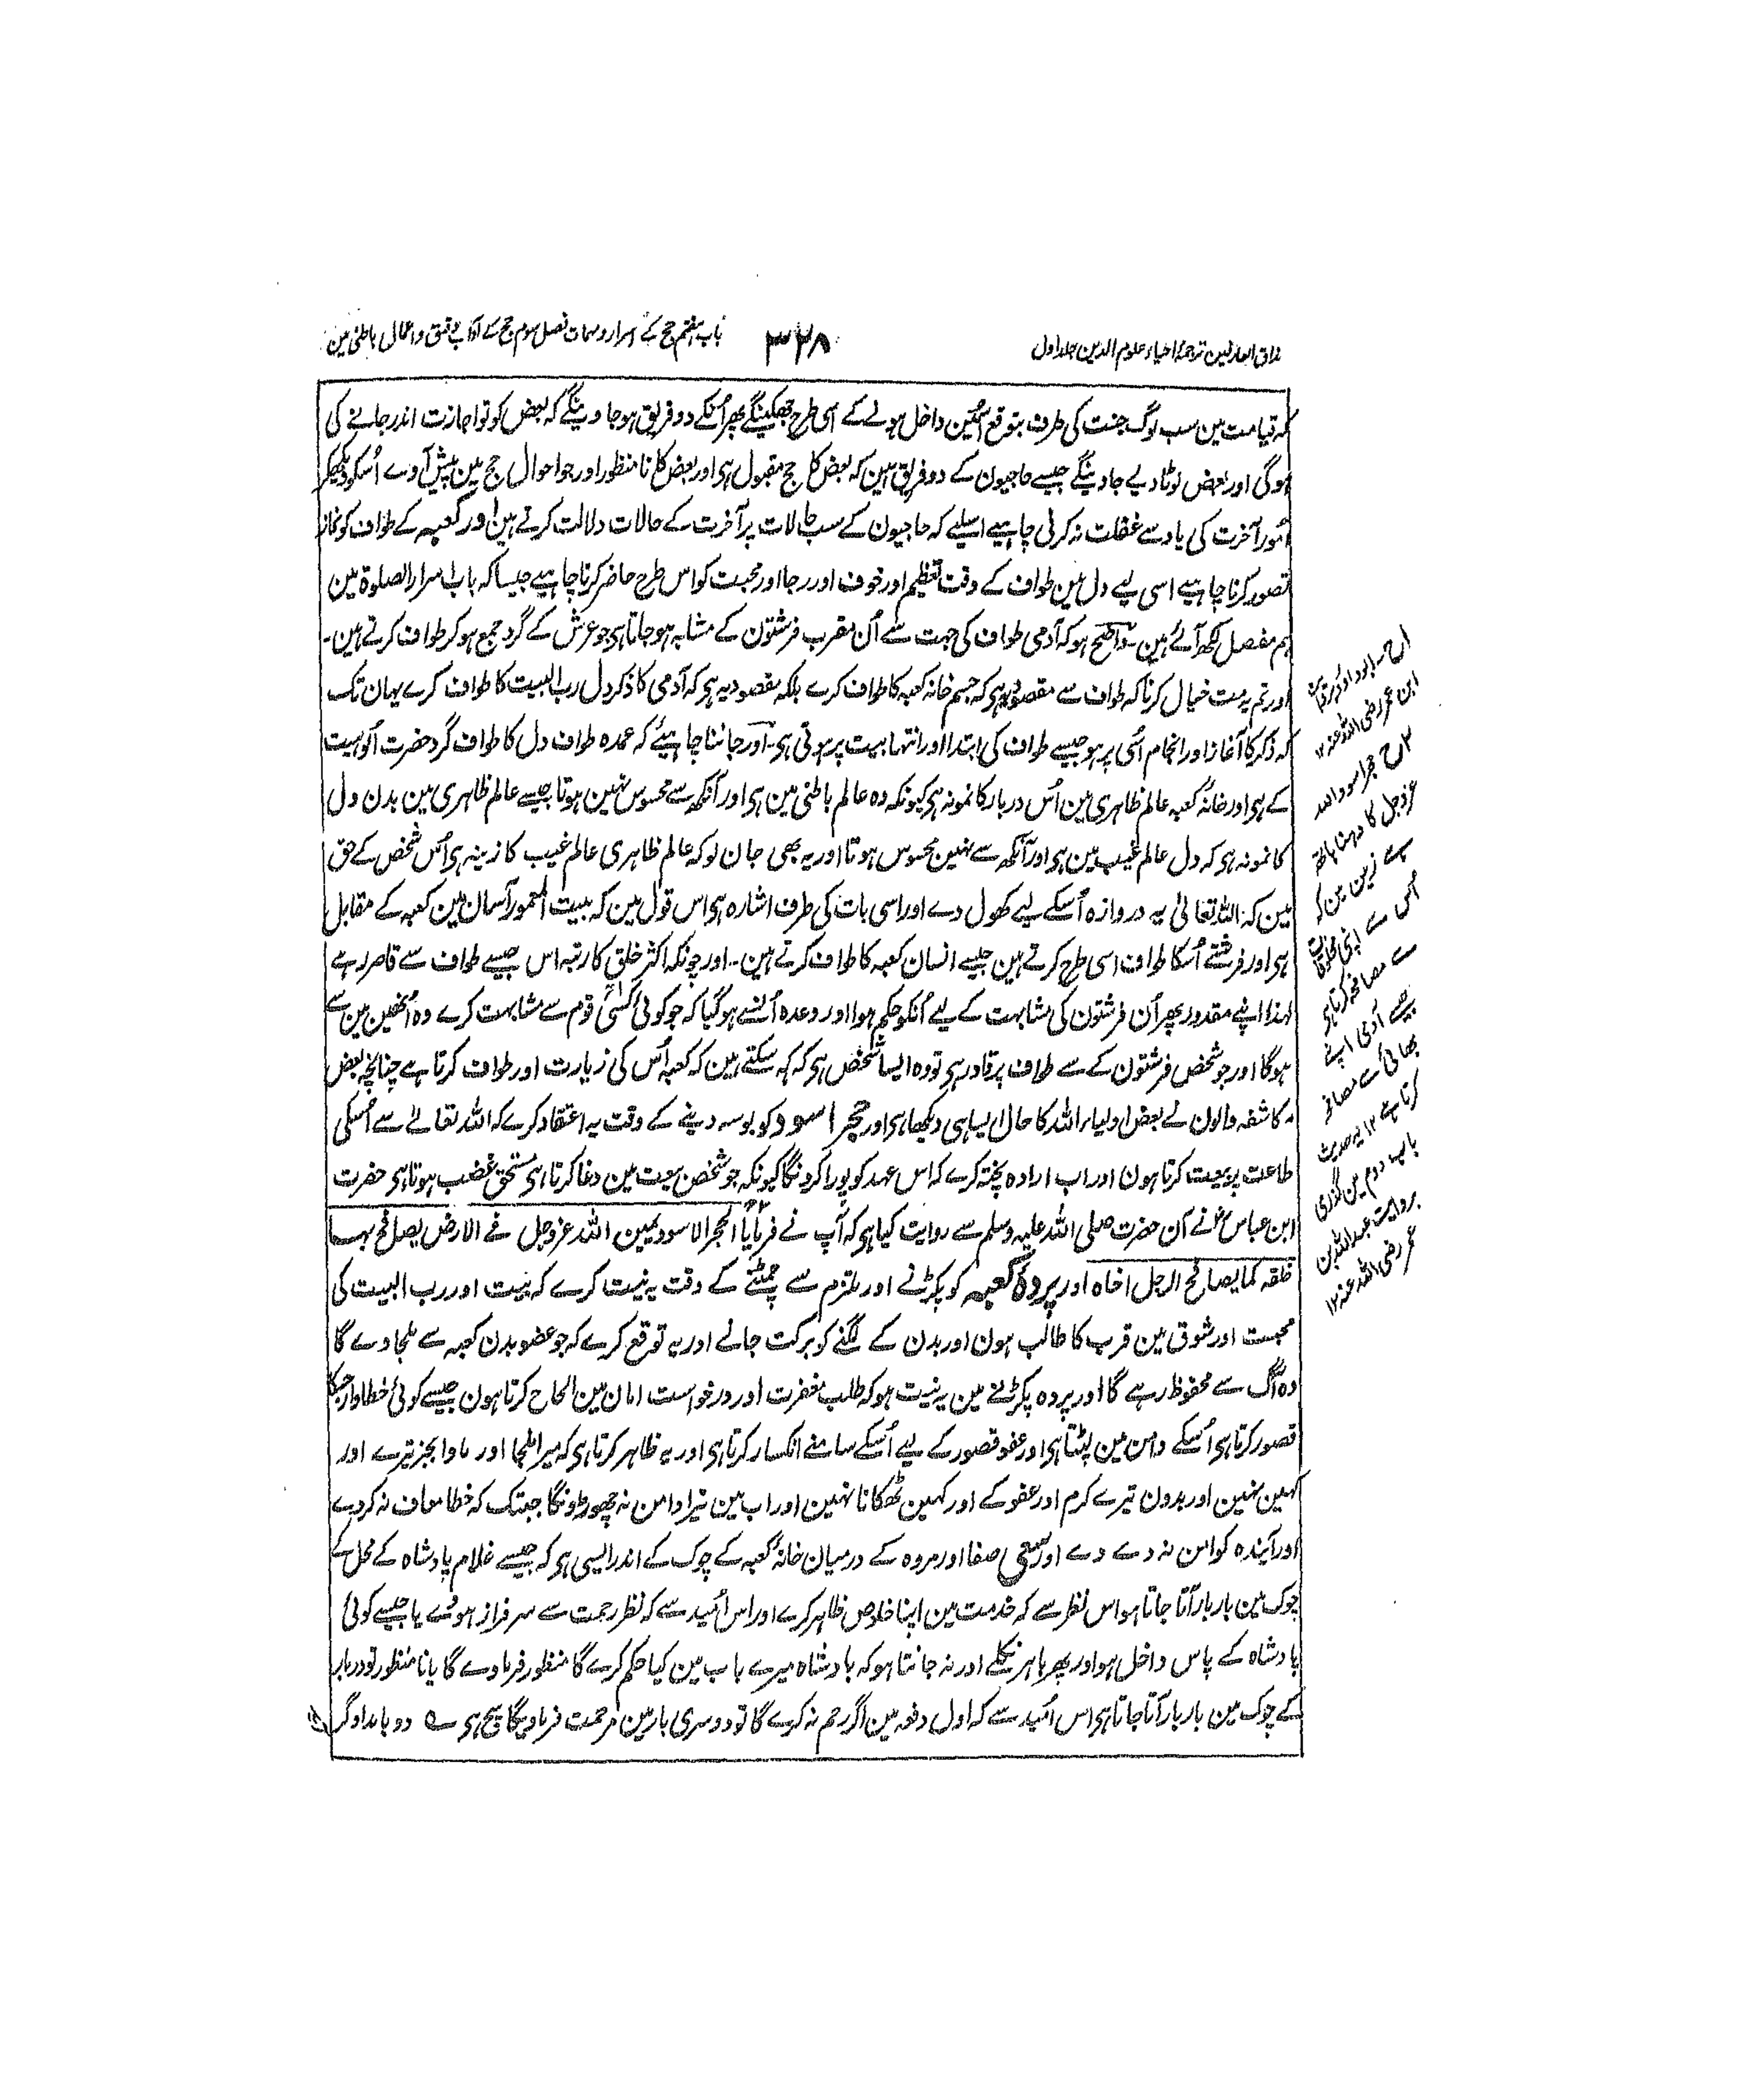 مذاق العارفین ترجمۂ احیاء علوم الدین جلد اول
۳۲۸
باب ہفتم حج کے اسرار و مہمات فصل سوم حج کے آداب دقیق و اعمال باطنی مین
کہ قیامت مین سب لوگ جنت کی طرف بتوقع اُسمین داخل ہونے کے اسی طرح جھکینگے پھر اُنکے دو فریق ہو جاوینگے کہ بعض کو تو اجازت اندر جانے کی
ہوگی اور بعض لوٹا دیے جاوینگے جیسے حاجیون کے دو فریق ہین کہ بعض کا حج مقبول ہی اور بعض کا نا منظور اور جو احوال حج مین پیش آوے اُسکو دیکھکر
اُمور آخرت کی یاد سے غفلت نہ کرنی چاہیے اسلیے کہ حاجیون کے سب حالات پر آخرت کے حالات دلالت کرتے ہین اور کعبہ کے طواف کو نماز
تصور کرنا چاہیے اسی لیے دل مین طواف کے وقت تعظیم اور خوف اور رجا اور محبت کو اس طرح حاضر کرنا چاہیے جیسا کہ باب اسرار الصلوۃ مین
ہم مفصل لکھ آئے ہین ۔ واضح ہو کہ آدمی طواف کی جہت سے اُن مقرب فرشتون کے مشابہ ہو جاتا ہی جو عرش کے گرد جمع ہو کر طواف کرتے ہین ۔
اور تم یہ مت خیال کرنا کہ طواف سے مقصود یہ ہی کہ جسم خانہ کعبہ کا طواف کرے بلکہ مقصود یہ ہی کہ آدمی کا ذکر دل رب البیت کا طواف کرے یہان تک
کہ ذکر کا آغاز اور انجام اُسی پر ہو جیسے طواف کی ابتدا اور انتہا بیت پر ہوتی ہی ۔ اور جاننا چاہیئے کہ عمدہ طواف دل کا طواف گرد حضرت الوہیت
کے ہی اور خانۂ کعبہ عالم ظاہری مین اُس دربار کا نمونہ ہی کیونکہ وہ عالم باطنی مین ہی اور آنکھ سے محسوس نہین ہوتا جیسے عالم ظاہری مین بدن دل
کا نمونہ ہی کہ دل عالم غیب مین ہی اور آنکھ سے نہین محسوس ہوتا اور یہ بھی جان لو کہ عالم ظاہری عالم غیب کا زینہ ہی اُس شخص کے حق
مین کہ اللہ تعالیٰ یہ دروازہ اُسکے لیے کھول دے اور اسی بات کی طرف اشارہ ہی اس قول مین کہ بیت المعمور آسمان مین کعبہ کے مقابل
ہی اور فرشتے اُسکا طواف اسی طرح کرتے ہین جیسے انسان کعبہ کا طواف کرتے ہین ۔ اور چونکہ اکثر خلق کا رتبہ اس جیسے طواف سے قاصر ہے
لہذا اپنے مقدور بھر اُن فرشتون کی مشابہت کے لیے اُنکو حکم ہوا اور وعدہ اُنسے ہو گیا کہ جو کوئی کسی قوم سے مشابہت کرے وہ اُنھین مین سے
ہوگا اور جو شخص فرشتون کے سے طواف پر قادر ہی تو وہ ایسا شخص ہی کہ کہہ سکتے ہین کہ کعبہ اُس کی زیارت اور طواف کرتا ہے چنانچہ بعض
مکاشفہ والون نے بعض اولیاء اللہ کا حال ایسا ہی دیکھا ہی اور حجر اسود کو بوسہ دینے کے وقت یہ اعتقاد کرے کہ اللہ تعالے سے اُسکی
طاعت پر بیعت کرتا ہون اور اب ارادہ پختہ کرے کہ اس عہد کو پورا کرونگا کیونکہ جو شخص بیعت مین دغا کرتا ہی مستحق غضب ہوتا ہی حضرت
ابن عباس رضؓ نے آن حضرت صلی اللہ علیہ وسلم سے روایت کیا ہی کہ آپ نے فرمایا الحجر الاسود یمین اللہ عزوجل فے الارض یصافح بہا
خلقہ کما یصافح الرجل اخاہ اور پردۂ کعبہ کو پکڑنے اور ملتزم سے چمٹنے کے وقت یہ نیت کرے کہ بیت اور رب البیت کی
محبت اور شوق مین قرب کا طالب ہون اور بدن کے لگنے کو برکت جانے اور یہ توقع کرے کہ جو عضو بدن کعبہ سے ملجاوے گا
وہ آگ سے محفوظ رہے گا اور پردہ پکڑنے مین یہ نیت ہو کہ طلب مغفرت اور درخواست امان مین الحاح کرتا ہون جیسے کوئی خطاوار جسکا
قصور کرتا ہی اُسکے دامن مین لپٹتا ہی اور عفو قصور کے لیے اُسکے سامنے انکسار کرتا ہی اور یہ ظاہر کرتا ہی کہ میرا ملجا اور ماوا بجز تیرے اور
کہین نہین اور بدون تیرے کرم اور عفو کے اور کہین ٹھکانا نہین اور اب مین تیرا دامن نہ چھوڑونگا جبتک کہ خطا معاف نہ کردے
اور آیندہ کو امن نہ دے دے اور سعی صفا اور مروہ کے درمیان خانۂ کعبہ کے چوک کے اندر ایسی ہی کہ جیسے غلام پادشاہ کے محل کے
چوک مین بار بار آتا جاتا ہو اس نظر سے کہ خدمت مین اپنا خلوص ظاہر کرے اور اس اُمید سے کہ نظر رحمت سے سرفراز ہووے یا جیسے کوئی
پادشاہ کے پاس داخل ہو اور پھر باہر نکلے اور نہ جانتا ہو کہ بادشاہ میرے باب مین کیا حکم کرے گا منظور فرماوے گا یا نا منظور تو دربار
کے چوک مین بار بار آتا جاتا ہی اس اُمید سے کہ اول دفعہ مین اگر رحم نہ کرے گا تو دوسری بار مین مرحمت فرماویگا سچ ہی ے دو بامداد گر
۱ح ۔ ابو داؤد بروایت
ابن عمر رضی اللہ عنہ ۱۲
۲ح حجر اسود اللہ
عزوجل کا دہنا ہاتھ
ہے زمین مین کہ
اُس سے اپنی مخلوقات
سے مصافحہ کرتا ہی
جیسے آدمی اپنے
بھائی سے مصافحہ
کرتا ہے ۱۲ یہ حدیث
باب دوم مین گذری
بروایت عبداللہ بن
عمر رضی اللہ عنہ ۱۲